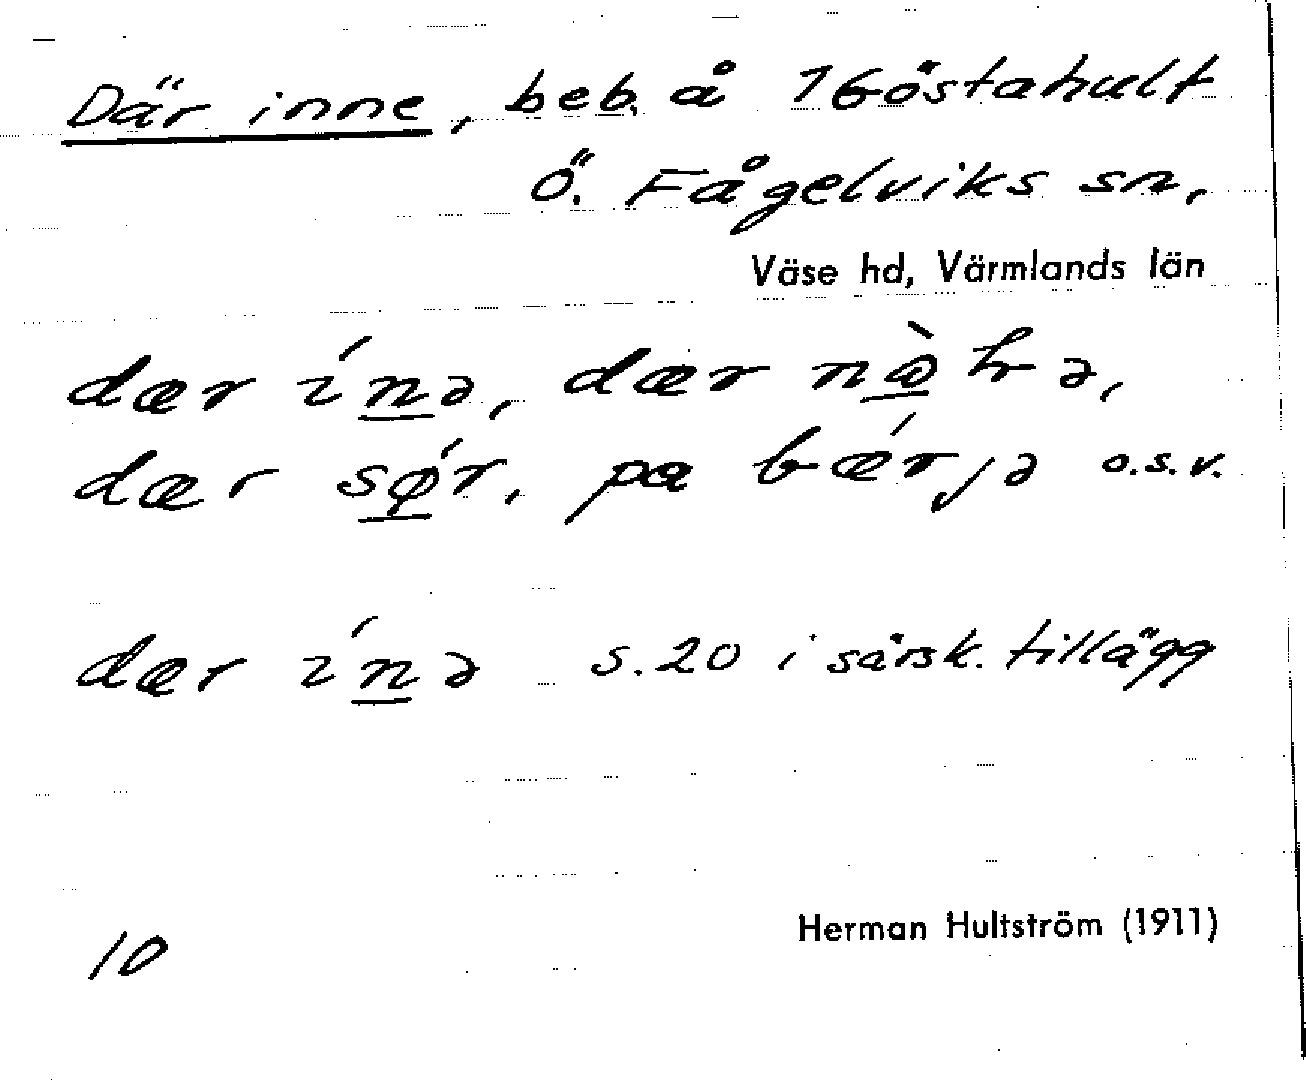 Där inne, beb. å 1 Göstahult
Ö. Fågelviks sn,
Väse hd, Värmlands län
dær ínə, dær
dær sǿr, pa bǽrjə o.s.v.
dær ínə s. 20 i särsk. tillägg
Herman Hultström (1911)
10